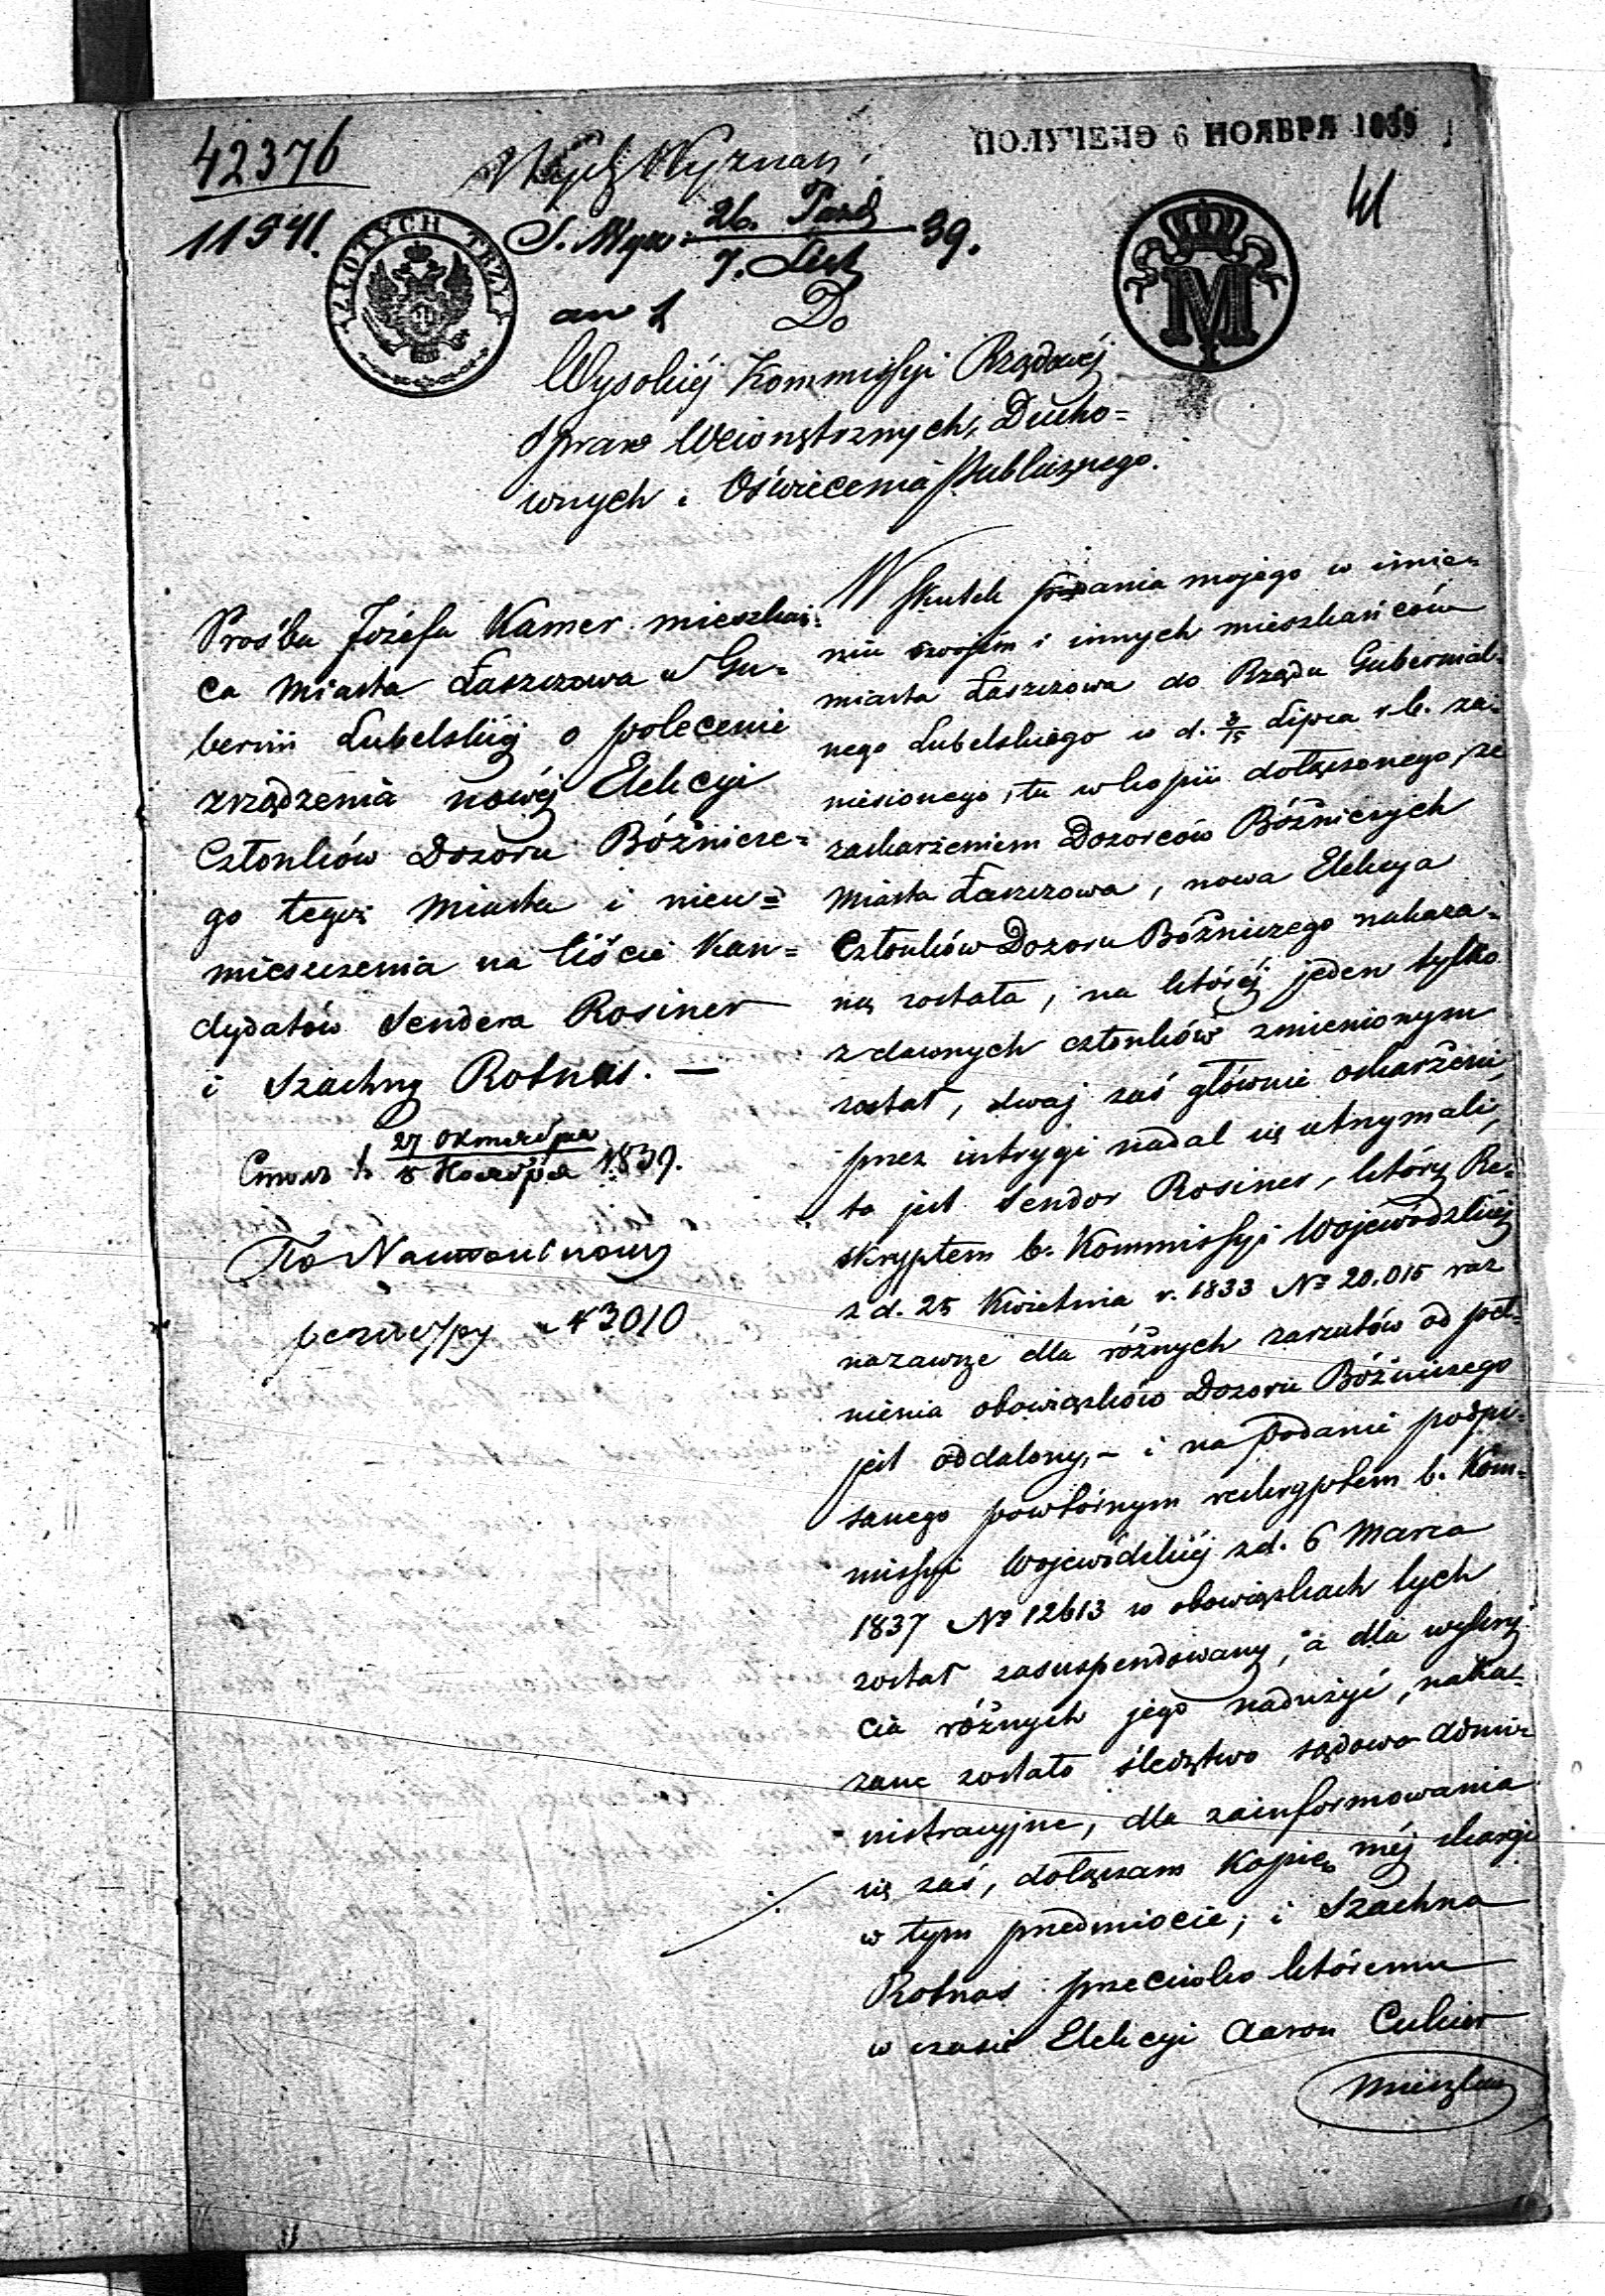 42376
11541.
ПОЛУЧЕНО 6 НОЯБРЯ 1839
41
Wydz Wyznań
ZŁOTYCH TRZY
26. Paźd
7. List
39.
M
Do
Wysokiéj Kommissyi Rządowéj
Spraw Wewnętrznych, Ducho=
wnych i Oświecenia Publicznego.
Prośba Józefa Kamer mieszkań=
ca Miasta Łaszczowa w Gu=
bernii Lubelskiéj o polecenie
zrządzenia nowéj Elekcyi
Członków Dozoru Bóżnicze=
go tegoż Miasta i nieu=
mieszczenia na liście Kan=
dydatów Sendera Rosiner
i Szachny Rotnas. —
27 Октября
8 Ноября 1839.
По
№ 3010
W skutek podania mojego w imie=
niu swojém i innych mieszkańców
miasta Łaszczowa do Rządu Gubernial=
nego Lubelskiego w d. 3/15 Lipca r. b. za=
niesionego, tu w kopii dołączonego, ze
zaskarżeniem Dozorców Bóżniczych
Miasta Łaszczowa, nowa Elekcya
Członków Dozoru Bóżniczego nakaza=
ną została, na któréj jeden tylko
z dawnych członków zmienionym
został, dwaj zaś głównie oskarżeni,
przez intrygi nadal się utrzymali,
to jest Sendor Rosiner, który Re=
skryptem b. Kommissyi Wojewódzkiéj
z d. 25 Kwietnia r. 1833 Nº 20.015 raz
nazawsze dla różnych zarzutów od peł=
nienia obowiązków Dozoru Bóżniczego
jest oddalony, – i na podanie podpi=
sanego powtórnym reskryptem b. Kom=
missyi Wojewódzkiéj z d. 6 Marca
1837 Nº 12613 w obowiązkach tych
został zasuspendowany, a dla wykry=
cia różnych jego nadużyć, naka=
zane zostało śledztwo sądowo-admi=
nistracyjne, dla zainformowania
się zaś, dołączam Kopię méj skargi
w tym przedmiocie; i Szachna
Rotnas przeciwko któremu
w czasie Elekcyi Aaron Cukier